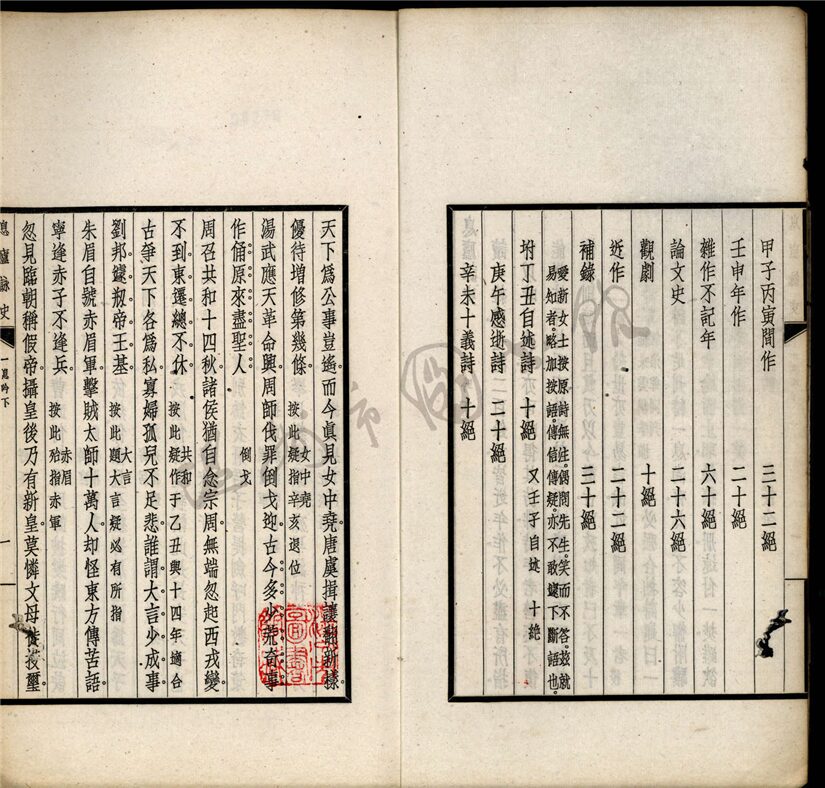 甲子丙寅間作 三十二絕
壬申年作 二十絕
雜作不記年 六十絕
論文史 二十六絕
觀劇 十絕
近作 二十二絕
補錄 三十絕
愛新女士按原詩無注。偶問先生。笑而不答。茲就
易知者。略加按語。傳信傳疑。亦不敢遽下斷語也。
坿丁丑自述詩 十絕 又壬子自述 十絕
庚午感逝詩 二十絕
辛未十義詩 十絕
天下爲公事豈遙。而今眞見女中堯。唐虞揖讓翻新樣。
優待增修第幾條。 女中堯 按此疑指辛亥退位
湯武應天革命興。周師伐罪倒戈迎。古今多少荒奇事。
作俑原來盡聖人。 倒戈
周召共和十四秋。諸侯猶自念宗周。無端忽起西戎變。
不到東遷總不休。 共和 按此疑作于乙丑與十四年適合
古爭天下各爲私。寡婦孤兒不足悲。誰謂大言少成事。
劉邦剏帝王基。 大言 按此題大言疑必有所指
朱眉自號赤眉軍。擊賊太師十萬人。却怪東方傳苦語。
寧逢赤子不逢兵。 赤眉 按此殆指赤軍
忽見臨朝稱假帝。攝皇後乃有新皇。莫憐文母投璽。
息廬詠史 一息吟下 一